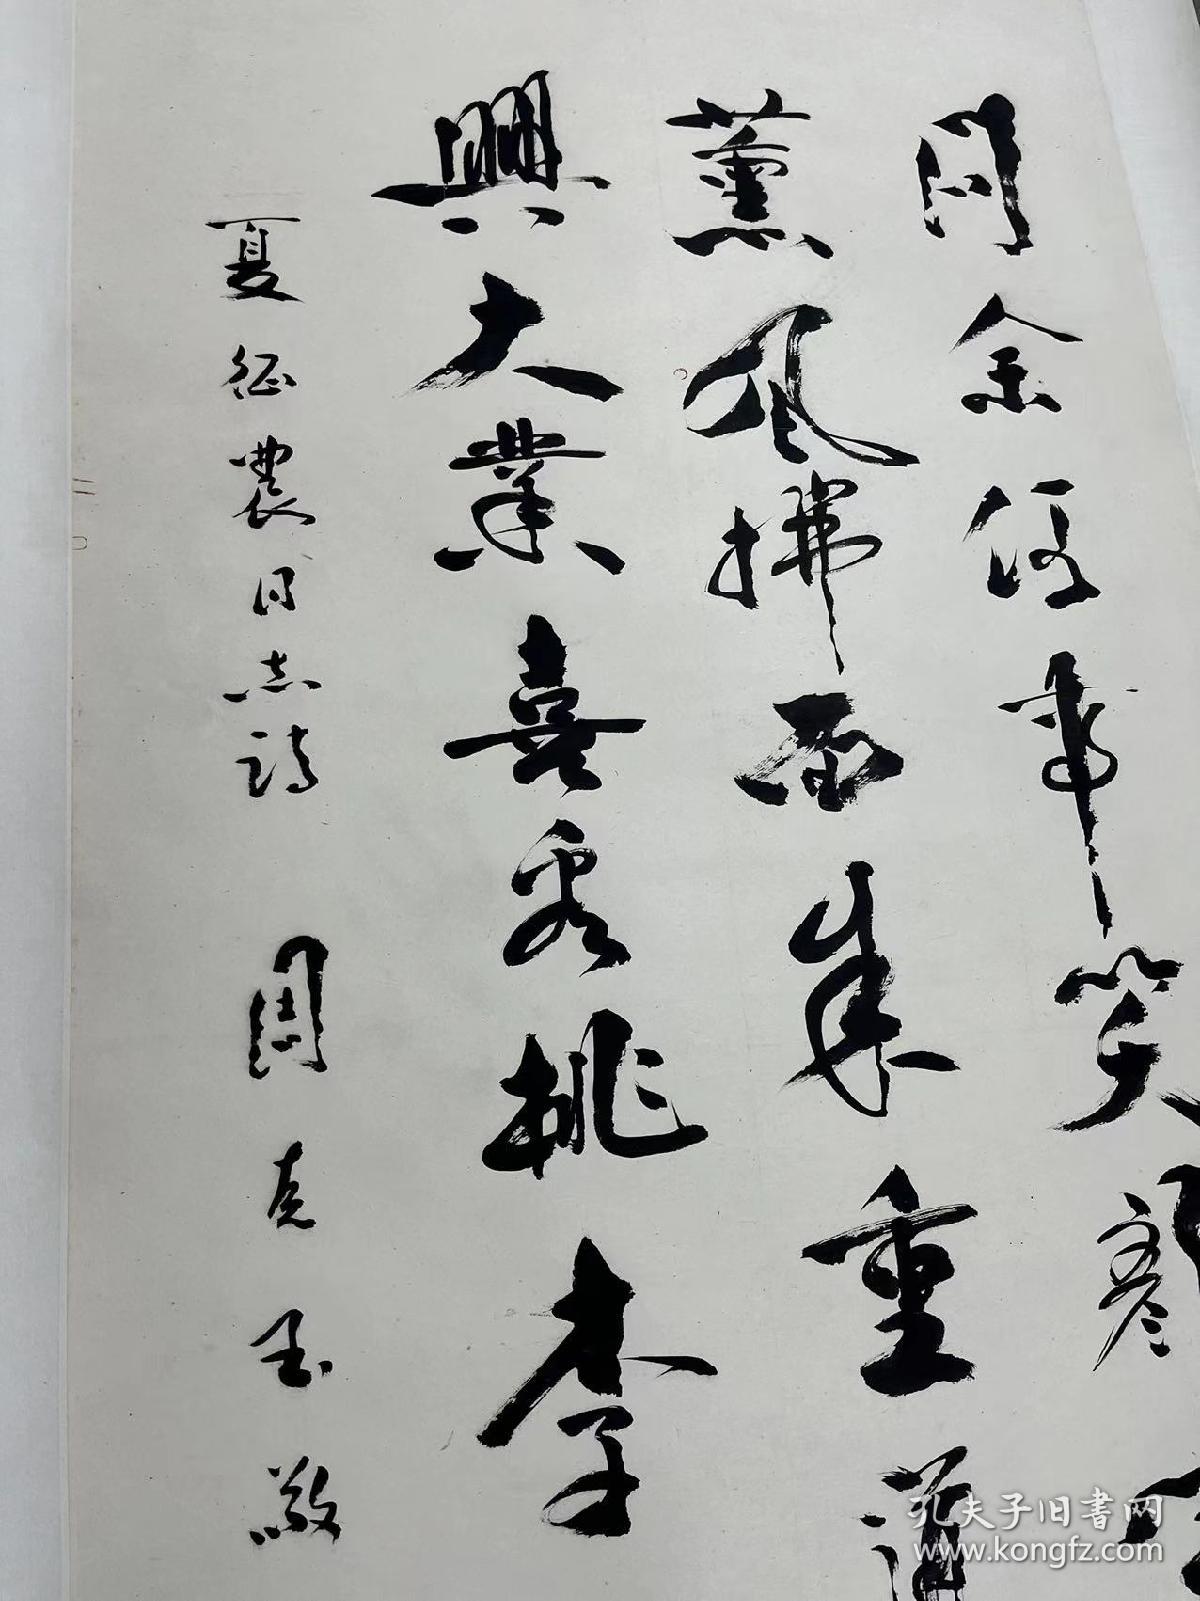 問余何事笑顏
薰風拂面來重
興大業喜看桃李
夏征農同志詩 周克玉敬
孔夫子旧书网
www.kongfz.com